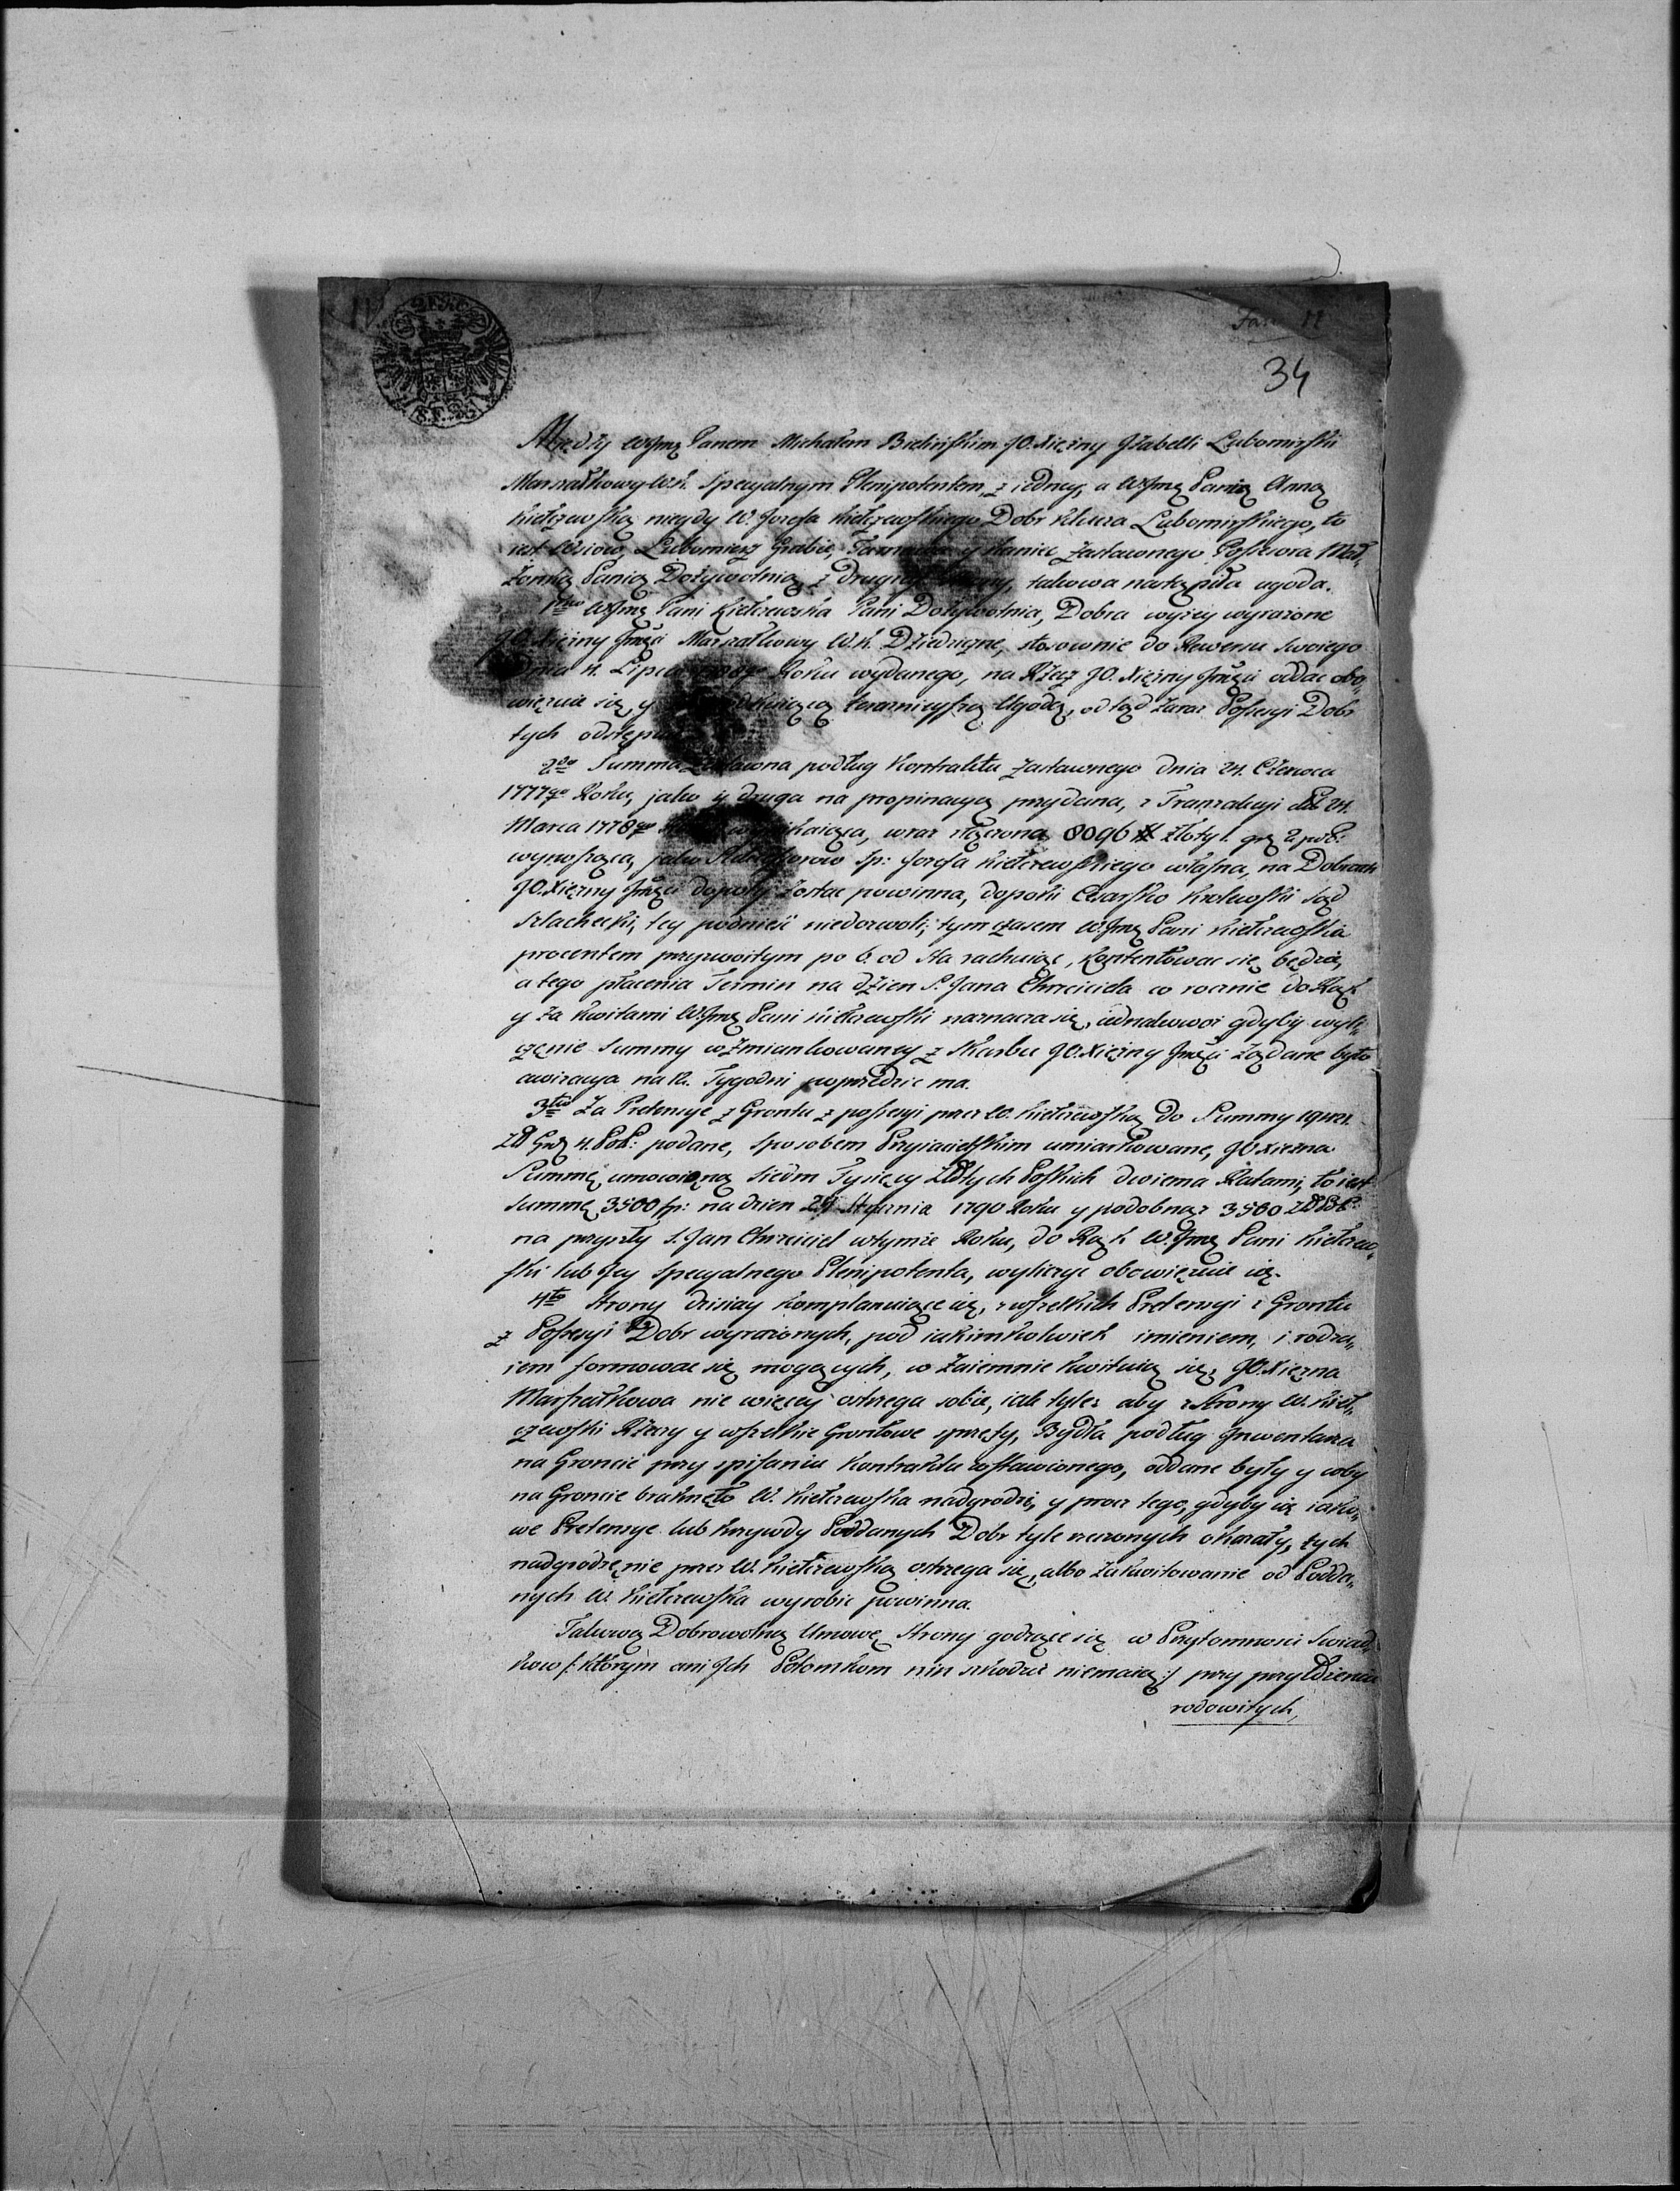 34
Między WJmę Panem Michałem Bielińskim JO. Xiężny Jzabelli Lubomirski
Marszałkowy W.K. specyalnym Plenipotentem, z iedney, a WJmę Panią Anną
Kiełczewską niegdy W. Jozefa Kiełczewskiego Dobr Klucza Lubomirskiego, to
iest Lubomierz Grabie, y Staniec zastawnego Possesora Mał„
żonką Panią Dożywotnią, z drugiey takowa nastąpiła ugoda.
1mo WJmę Pani Kiełczewska Pani Dożywotnia, Dobra wyżey wyrażone
JO. Xiężny Jmści Marszałkowy W.K. Dziedziczne, stosownie do Rewersu swoiego
dnia 4. Lipca Roku wydanego, na Rzecz JO. Xiężny Jmści oddać obo„
więzuie się, y teraznieyszą Ugodą, od tąd zaraz Possesyi Dobr
tych odstępuie
2do Summa Zastawna podług Kontraktu zastawnego dnia 24. Czerwca
1777go Roku, jako y druga na propinacyą przydana, z Tranzakcyi 24.
Marca 1778go wynikaiąca, wraz złączona 8096 # złoty 1. gr. 2 pol:
wynosząca, jako Sukcessorow śp: Jozefa Kiełczewskiego własna, na Dobrach
JO. Xiężny Jmści dopoty zostać powinna, dopoki Cesarsko Krolewski Sąd
Szlachecki, tey podnieść niedozwoli; tym czasem WJmę Pani Kiełczewska
procentem przyzwoitym po 6. od Sta rachuiąc, kontentować się będzie,
a tego płacenia Termin na dzien S. Jana Chrzciciela co rocznie do Rąk
y za Kwitami WJmę Pani Kiełczewski naznacza się, iednakowoż gdyby wyli„
czenie Summy wzmiankowaney z Skarbu JO. Xiężny Jmści żądane było
awizacya na 12. Tygodni poprzedzic ma.
3tio Za Pretensye z Gruntu z possesyi przez W. Kiełczewską do Summy 19421.
Zł Gr. 4. Pol: podane, sposobem Przyiacielskim umiarkowane, JO Xiezna
Summę umowioną siedm Tysięcy Złotych Polskich dwiema Ratami, to iest
summę 3500 fp: na dzien 24 Stycznia 1790 Roku y podobnąz 3500 Zł Pol:
na przyszły S. Jan Chrzciciel wtymże Roku, do Rąk W.Jmę Pani Kiełczew„
ski lub Jey specyalnego Plenipotenta, wyliczyc obowięzuie się.
4to Strony dzisiay komplanuiące się, z wszelkich Pretensyi z Gruntu
z Possesyi Dobr wyrażonych, pod iakimkolwiek imieniem, i rodza„
iem formować się mogących, wzaiemnie kwituią się, JO. Xiężna
Marszałkowa nie więcey ostrzega sobie, iak tyle: aby z Strony W. Kieł„
czewski Rzeczy y wszelkie Gruntowe sprzęty, Bydła podług Jnwentarza
na Gruncie przy spisaniu Kontraktu zostawionego, oddane były y coby
na Gruncie brakneło W. Kiełczewska nadgrodzi, y procz tego, gdyby się iako„
we Pretensye lub krzywdy Poddanych Dobr tyle rzeczonych okazały, tych
nadgrodzenie przez W. Kiełczewską ostrzega się, albo zakwitowanie od Podda„
nych W. Kiełczewska wyrobic powinna.
Takową Dobrowolną Umowę Strony godzące się w Przytomnosci Swiad„
kow /: ktorym ani Jch Potomkom nin szkodzic niemaią :/ przy przyłożeniu
rodowitych,